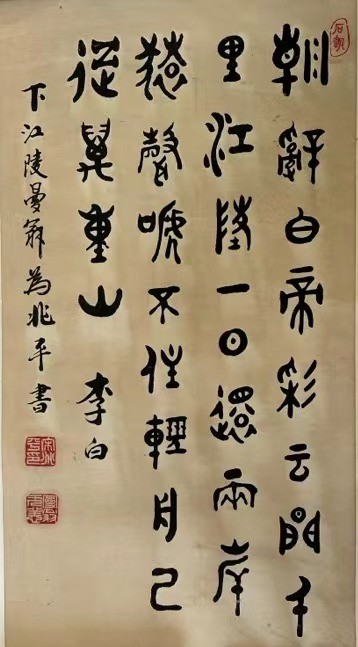 朝辭白帝彩云間千
里江陵一日還兩岸
猿聲啼不住輕舟已
過萬重山 李白
下江陵曼翁为兆平書